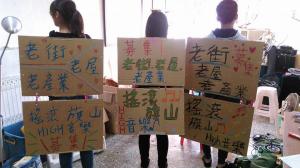 老街
老屋
老產業
搖滾 旗山
HIGH 音樂
募集!
募集!
老街 老屋
老產業
搖滾
旗山
HIGH
音樂
老街
老屋
老產業
募集
搖滾
旗山
High 音樂